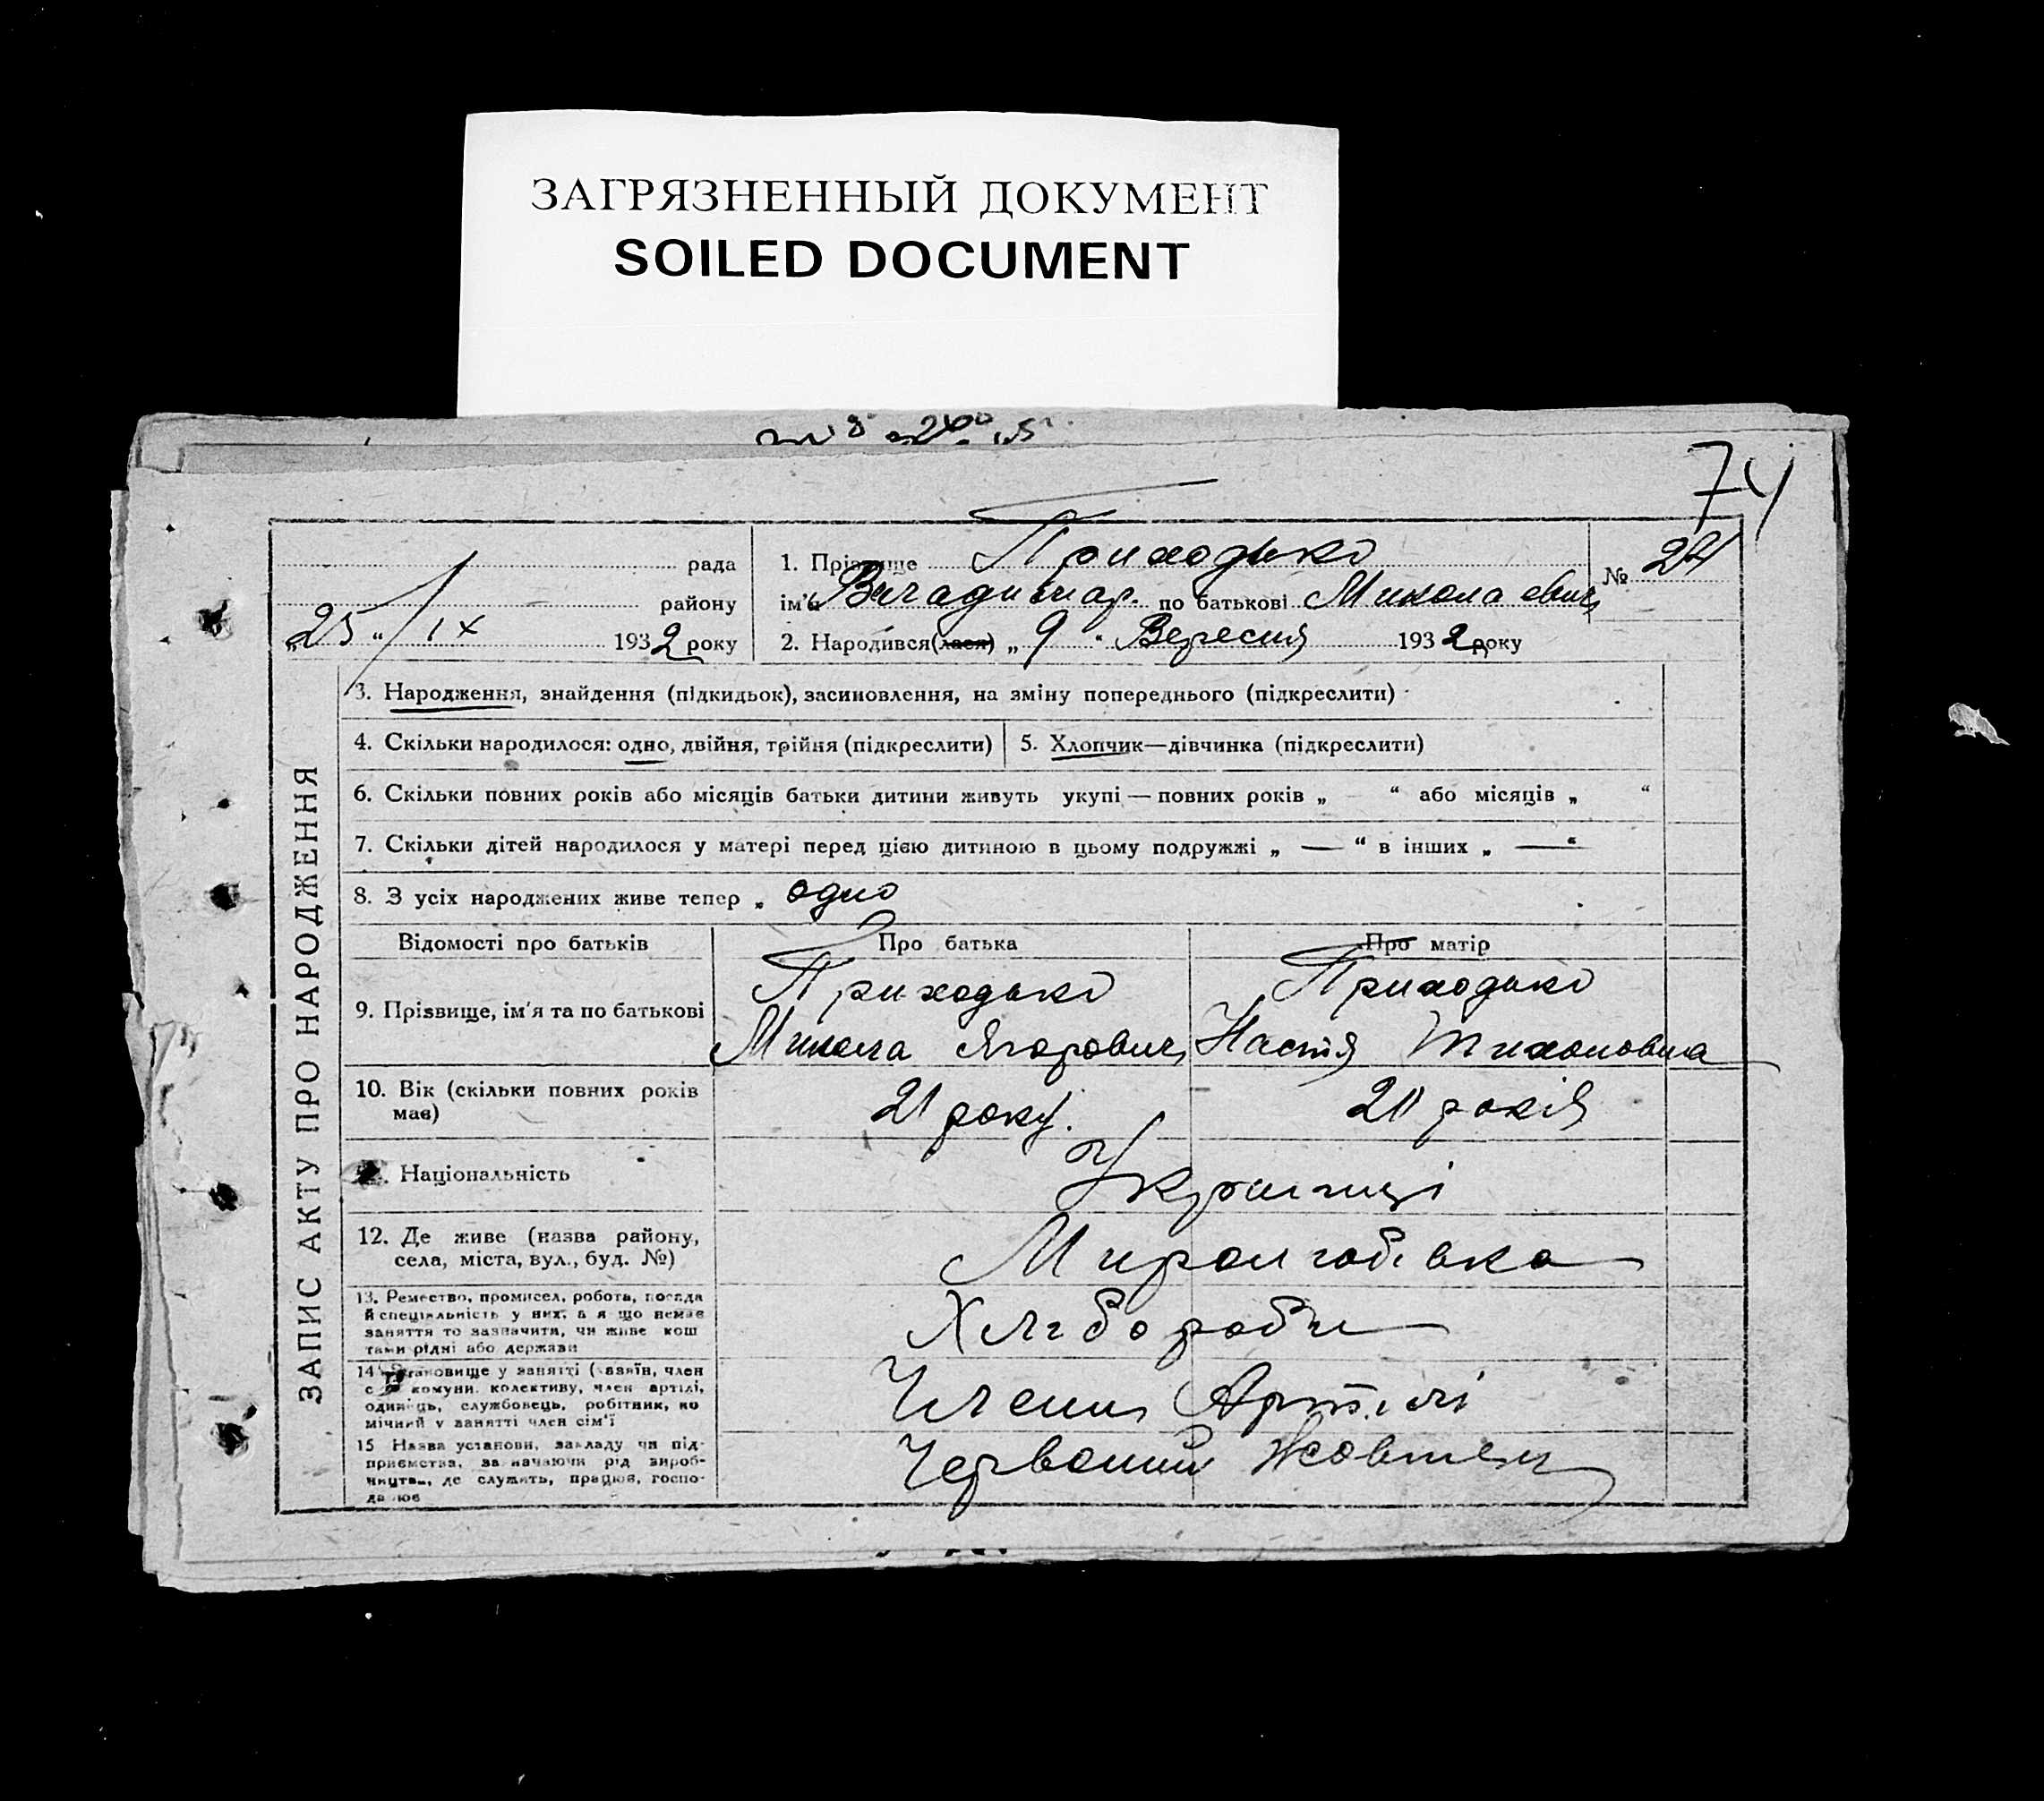 ЗАГРЯЗНЕННЫЙ ДОКУМЕНТ
SOILED DOCUMENT
74
рада
району
„25“ / IX 1932 року
1. Прізвище Приходько
ім'я Владимир. по батькові Миколаевич
№ 24
2. Народився(лася) „ 9 “ Вересня 1932 року
ЗАПИС АКТУ ПРО НАРОДЖЕННЯ
3. Народження, знайдення (підкидьок), засиновлення, на зміну попереднього (підкреслити)
4. Скільки народилося: одно, двійня, трійня (підкреслити)
5. Хлопчик—дівчинка (підкреслити)
6. Скільки повних років або місяців батьки дитини живуть укупі — повних років „ “ або місяців „ “
7. Скільки дітей народилося у матері перед цією дитиною в цьому подружжі „ — “ в інших „ — “
8. З усіх народжених живе тепер „ одно
Відомості про батьків
Про батька
Про матір
9. Прізвище, ім'я та по батькові
Приходько
Микола Ягорович
Приходько
Настя Тихоновна
10. Вік (скільки повних років
має)
21 року.
20 років
Національність
Українці
12. Де живе (назва району,
села, міста, вул., буд. №)
13. Ремество, промисел, робота, посада
й спеціяльність у них, а я що немає
заняття то зазначити, чи живе кош
тами рідні або держави
Хлібороби
14 Становище у занятті (хазяїн, член
с комуни, колективу, член артілі,
одинець, службовець, робітник, по
мічний у занятті член сім'ї
Члени Артілі
15 Назва установи, закладу чи під-
приємства, зазначаючи рід вироб-
ництва, де служить, працює, госпо-
дарює
Червоний Жовтень